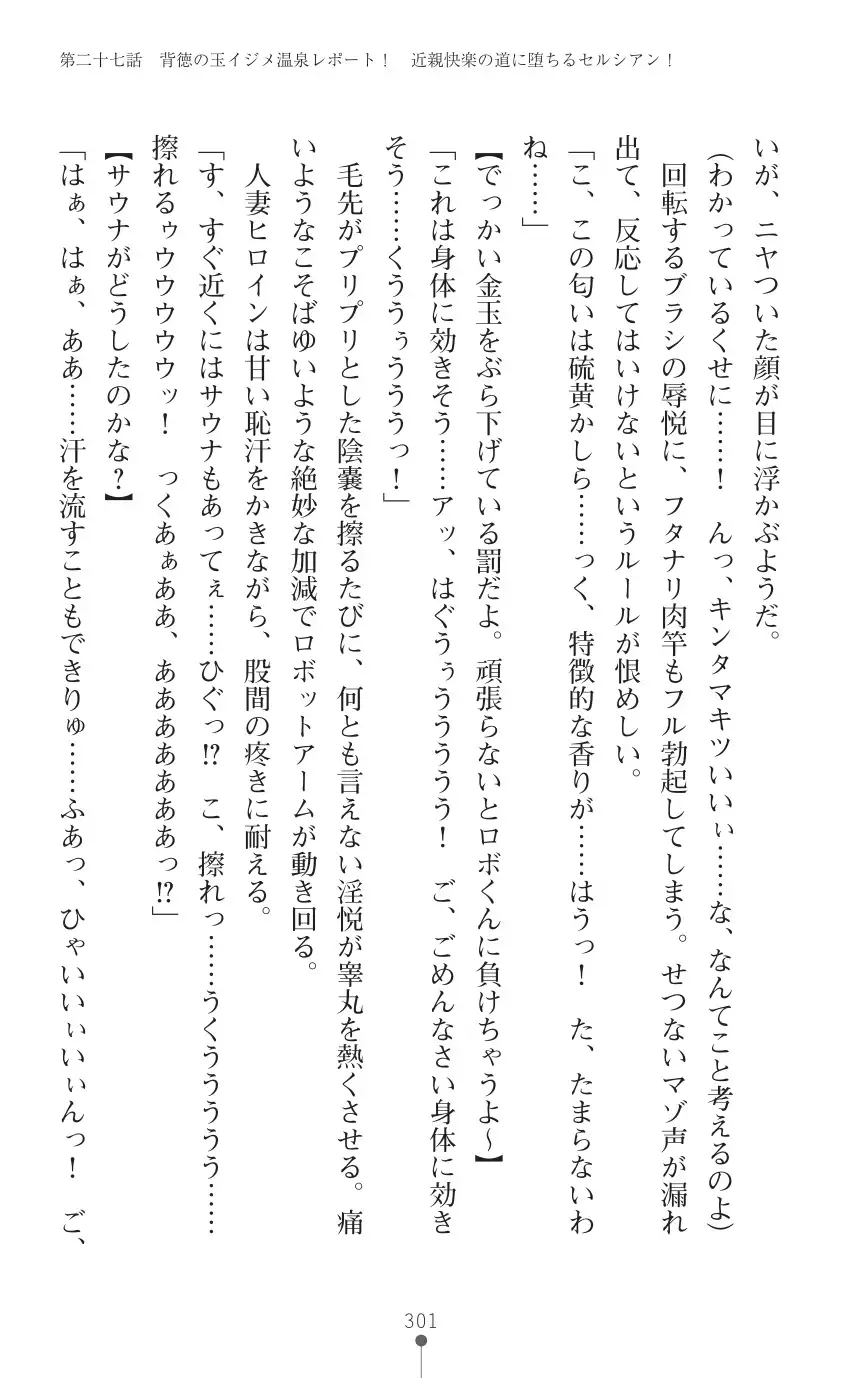 第二十七話　背徳の玉イジメ温泉レポート！　近親快楽の道に堕ちるセルシアン！
いが、ニヤついた顔が目に浮かぶようだ。
（わかっているくせに……！　んっ、キンタマキツいいぃ……な、なんてこと考えるのよ）
　回転するブラシの辱悦に、フタナリ肉竿もフル勃起してしまう。せつないマゾ声が漏れ
出て、反応してはいけないというルールが恨めしい。
「こ、この匂いは硫黄かしら……っく、特徴的な香りが……はうっ！　た、たまらないわ
ね……」
【でっかい金玉をぶら下げている罰だよ。頑張らないとロボくんに負けちゃうよ～】
「これは身体に効きそう……アッ、はぐうぅうううう！　ご、ごめんなさい身体に効き
そう……くううぅうううっ！」
　毛先がプリプリとした陰嚢を擦るたびに、何とも言えない淫悦が睾丸を熱くさせる。痛
いようなこそばゆいような絶妙な加減でロボットアームが動き回る。
　人妻ヒロインは甘い恥汗をかきながら、股間の疼きに耐える。
「す、すぐ近くにはサウナもあってぇ……ひぐっ!?　こ、擦れっ……うくううううう……
擦れるゥウウウウウッ！　っくあぁああ、あああああああああっ!?」
【サウナがどうしたのかな？】
「はぁ、はぁ、ああ……汗を流すこともできりゅ……ふあっ、ひゃいいぃいぃんっ！　ご、
301